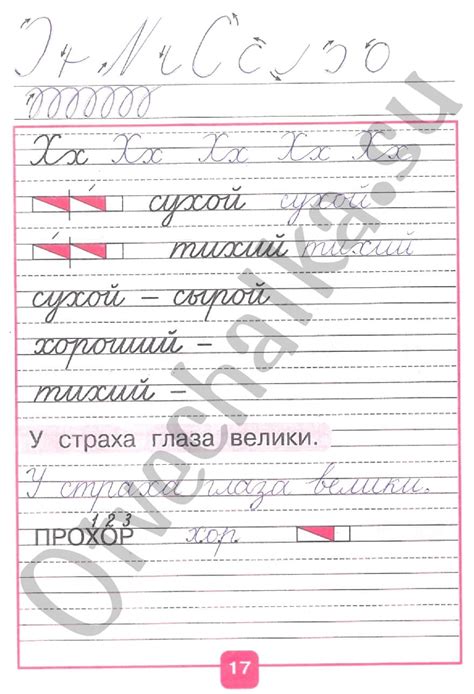 Хх Хх Хх Хх Хх
сухой сухой
тихий тихий
сухой – сырой
хороший –
тихий –
У страха глаза велики.
У страха глаза велики.
1 2 3
ПРОХОР хор
17
Otvechalka.su